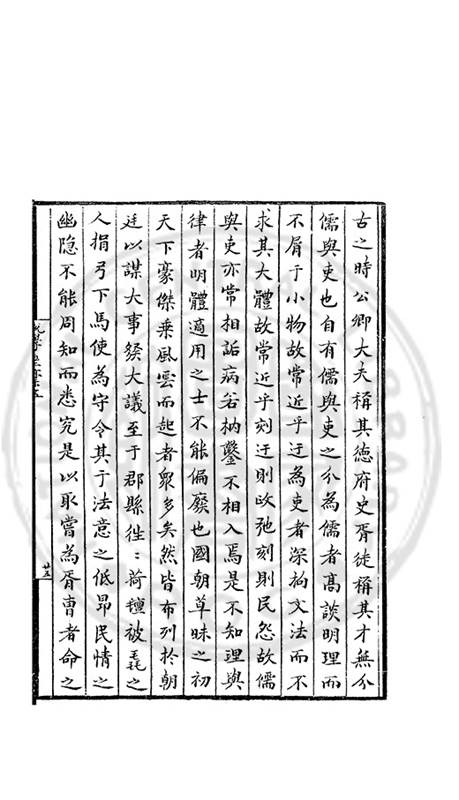 古之時公卿大夫稱其德府史胥徒稱其才無分
儒與吏也自有儒與吏之分為儒者高談明理而
不屑于小物故常近乎迂為吏者深拘文法而不
求其大體故常近乎刻迂則政弛刻則民怨故儒
與吏亦常相詬病若枘鑿不相入焉是不知理與
律者明體適用之士不能偏廢也國朝草昧之初
天下豪傑乗風雲而起者衆多矣然皆布列於朝
廷以謀大事發大議至于郡縣徃〻荷氊被毳之
人捐弓下馬使為守令其于法意之低昂民情之
幽隐不能周知而悉究是以取嘗為胥曹者命之
廿五